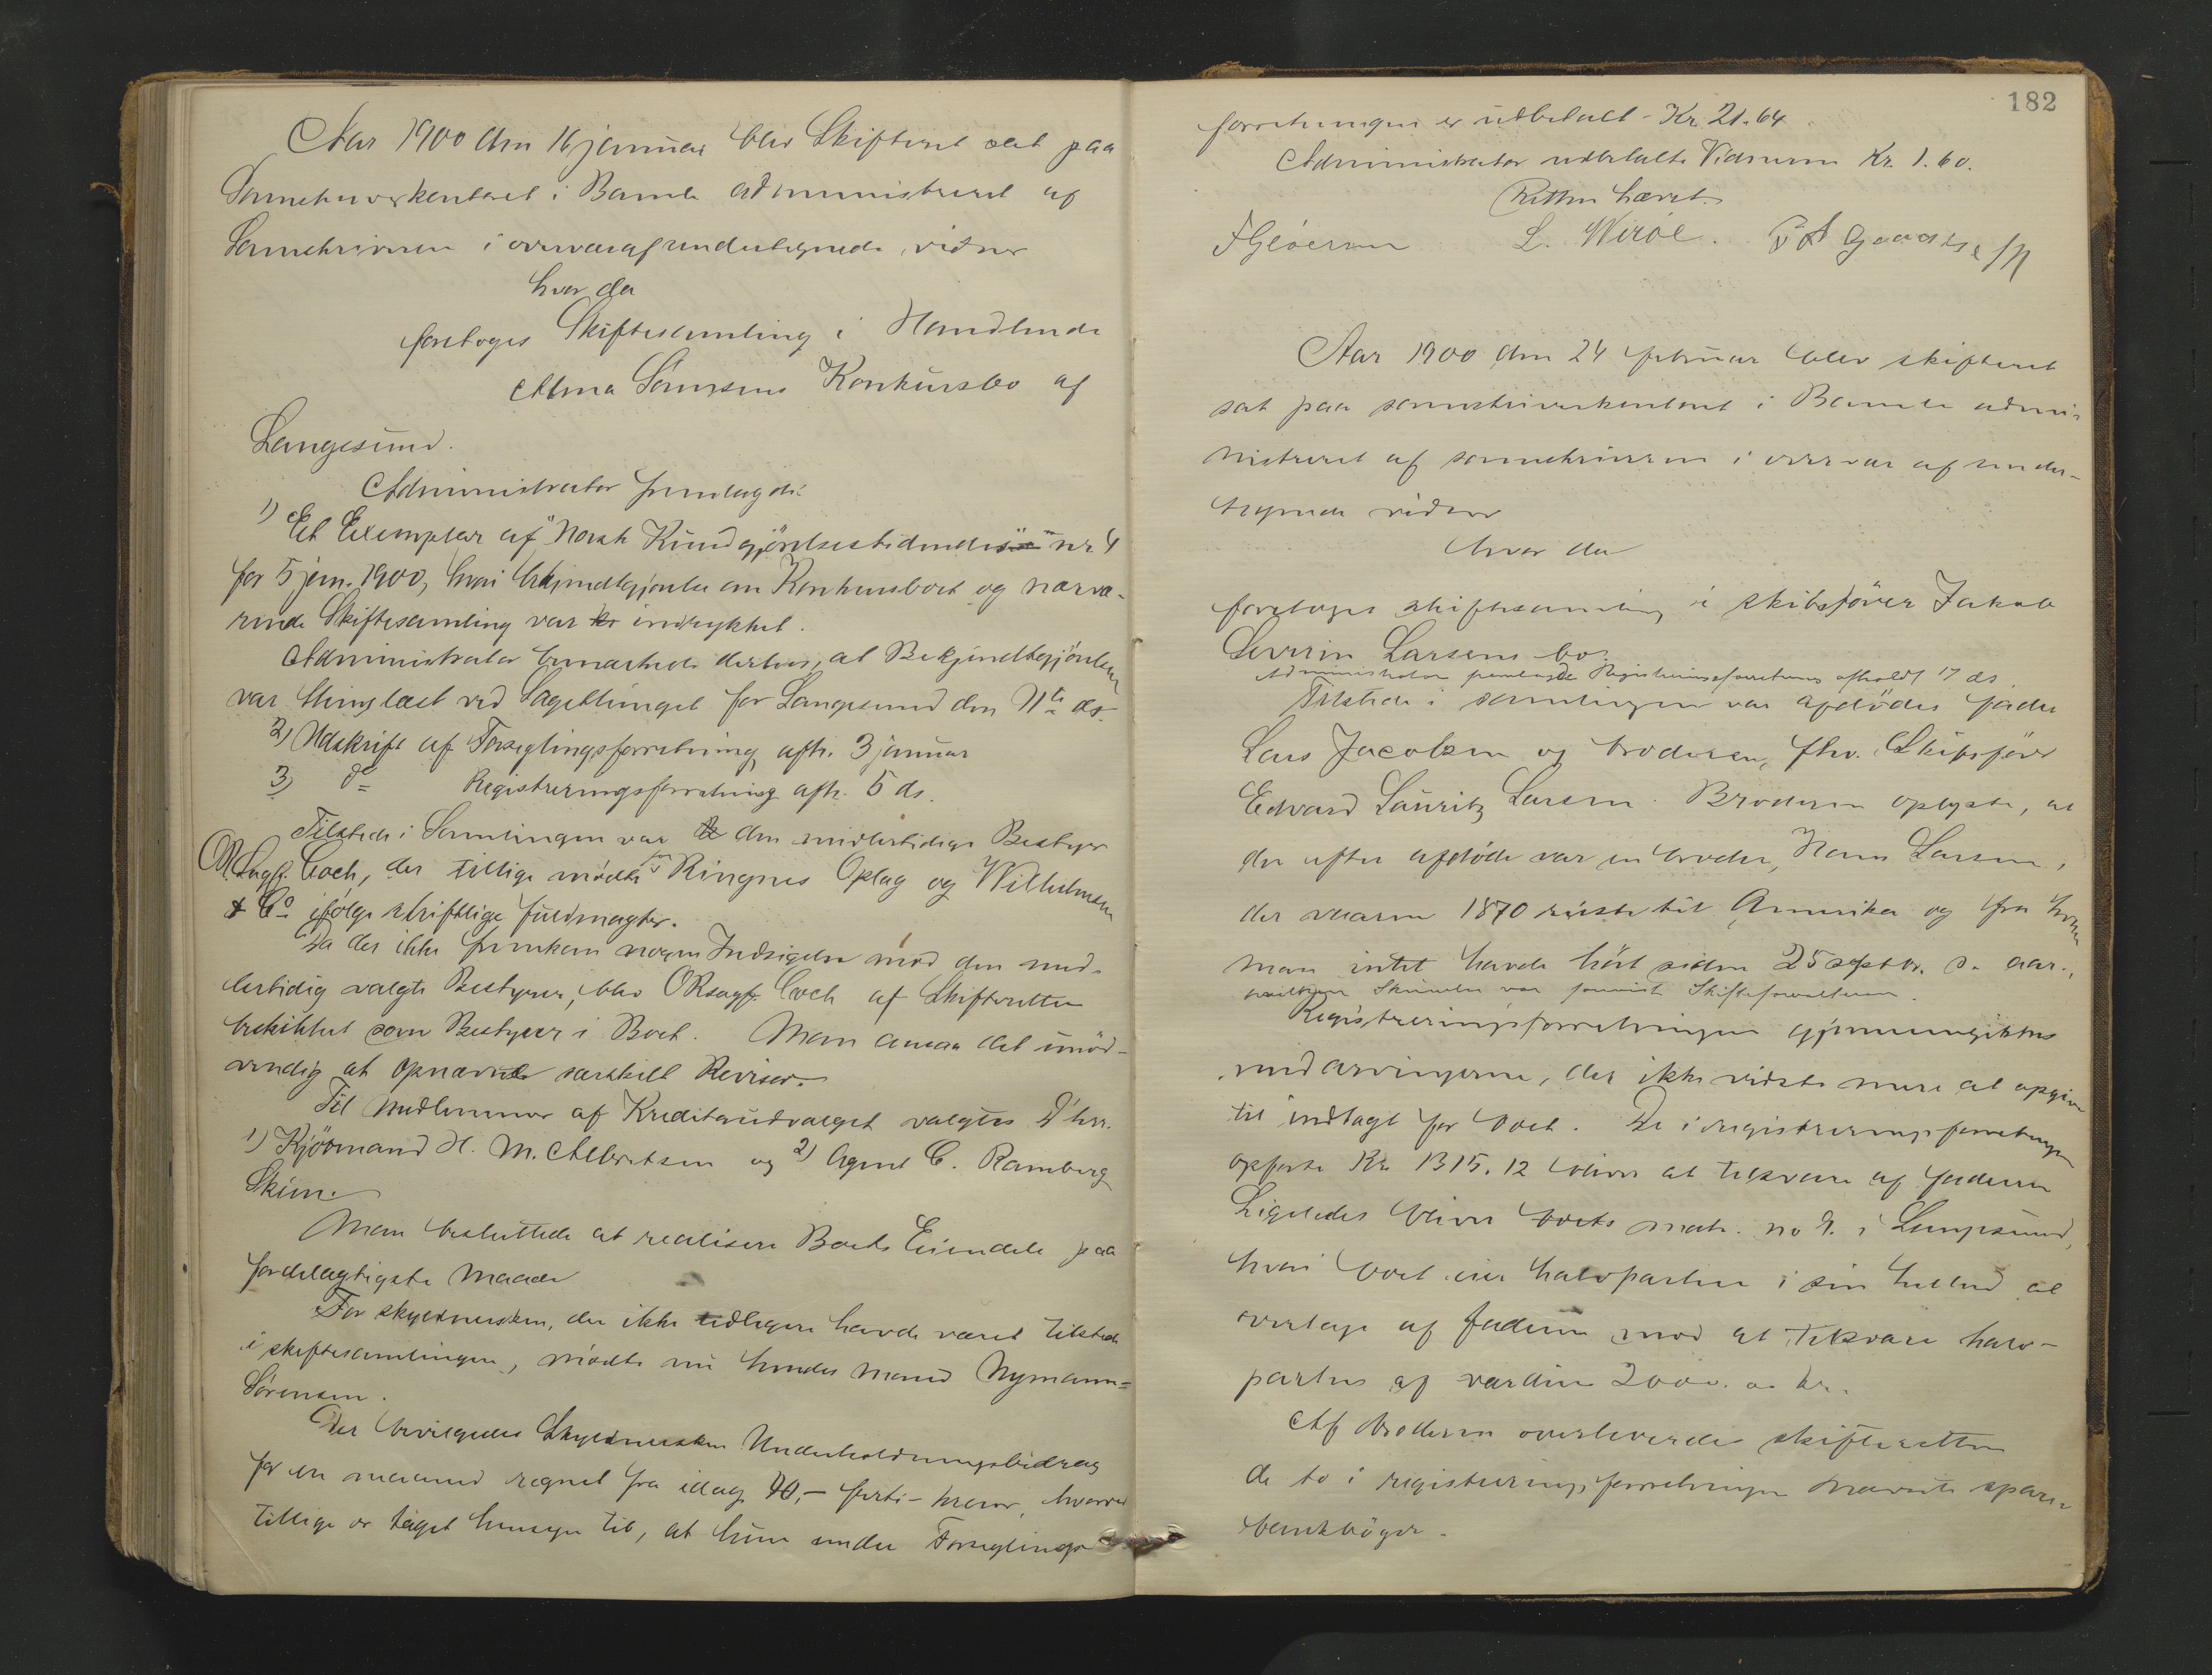 Aar 1900 den 16 januar blev Skifteret sat paa
Sorenskriverkontoret i Bamle administreret af
Sorenskriveren i overvær af undertegnede vidner
hvor da
foretoges Skiftesamling i Handlende
Alma Sörensens Konkursbo af
Langesund.
Administrator fremlagde:
1) Et Exemplar af "Norsk Kundgjörelsestidende" nr 4
for 5 jan. 1900, hvori bekjendtgjörelse om Konkursboet og nærvæ-
rende Skiftesamling var indrykket.
Administrator bemærkede derhos, at Bekjendtgjörelsen
var thinglæst ved Lagethinget for Langesund den 11te ds.
2) Udskrift af Forseglingsforretning afh. 3 januar
3) do Registreringsforretning afh. 5 ds.
Tilstede i Samlingen var den midlertidige Bestyrer
ORsagf. Coch, der tillige mödte for Ringnes Oplag og Wilhelmsen
& Co ifölge skriftlige fuldmagter.
Da der ikke fremkom nogen Indsigelse mod den mid-
lertidig valgte Bestyrer, blev ORsagf. Coch af Skifteretten
beskikket som Bestyrer i Boet. Man ansaa det unöd-
vendig at opnævne særskilt Revisor.
Til medlemmer af Kreditorudvalget valgtes D'hrr.
1) Kjöbmand H. M. Albretsen og 2) Agent C. Ramberg
Skien.
Man besluttede at realisere Boets Eiendele paa
fordelagtigste Maade
For skyldnersken, der ikke tidligere havde været tilstede
i skiftesamlingen, mödte nu hendes mand Nymann
Sörensen.
Der bevilgedes Skyldnersken Underholdningsbidrag
for en maaned regnet fra idag 40,- firti - kroner, hvorved
tillige er taget hensyn til, at hun under Forseglings
182
forretningen er udbetalt - Kr 21.64
Administrator udbetalte Vidnerne Kr. 1.60.
Retten hævet.
L. Wiröe.
Aar 1900 den 24 februar blev skifteret
sat paa sorenskriverkontoret i Bamle admi-
nistreret af sorenskriveren i overvær af under-
tegnede vidner
hvor da
foretoges skiftesamling i skibsförer Jakob
Severin Larsens bo.
Administrator fremlagde Registreringsforretning afholdt 17 ds
Tilstede i samlingen var afdödes fader
Lars Jacobsen og broderen, fhv. Skibsförer
Edvard Lauritz Larsen. Broderen oplyste, at
der efter afdöde var en broder, Hans Larsen,
der i aarene 1870 reiste til Amerika og fra hvem
man intet havde hört siden 25 septbr. s. aar.,
hvilken Skrivelse var forevist Skifteforvalteren.
Registreringsforretningen gjennemgikkes
med arvingerne, der ikke vidste mere at opgive
til indtægt for boet. De i registreringsforretningen
opförte Kr. 1315.12 bliver at tilsvare af faderen
Ligeledes bliver boets matr. no 9. i Langesund,
hvori boet eier halvparten i sin helhed at
overtage af faderen mod at tilsvare halv-
parten af værdien 2000. - kr.
Af broderen overleveredes skifteretten
de to i registreringsforretningen nævnte spare-
bankböger.